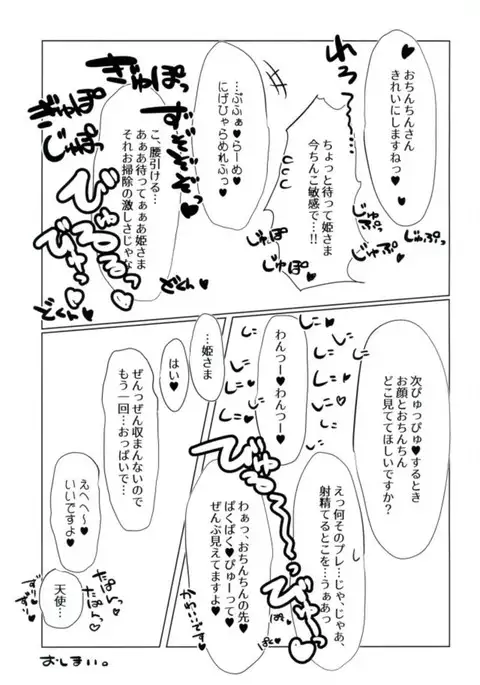 おちんちんさん
きれいにしますねっ♥
れろっ
ちょっと待って姫さま
今ちんこ敏感で…!!
じゅぷっ
じゅぷ
じゅぽ
じゅぽ
…ぷふぁ♥らーめ♥
にげひゃらめれふっ♥
ずぞぞぞっ
ぎゅぽっ
こ、腰引ける…
あぁあ待ってぁぁあ姫さま
それお掃除の激しさじゃな
ぎゅぽっ
じゅぽっ
どくん♡
どくん♡
次ぴゅっぴゅ♥するとき
お顔とおちんちん
どこ見ててほしいですか?
えっ何そのプレ…じゃ、じゃあ、
射精てるとこを…うぁあっ
わんつー♥わんつー♥
しこ
しこ
しこ
しこ
わぁっ、おちんちんの先♥
ぱくぱく♥ぴゅーって♥
ぜんぶ見えてますよ♥
かわいいです♥
…姫さま
はい♥
ぜんっぜん収まんないので
もう一回…おっぱいで…
えへへ〜♥
いいですよ♥
たぱんっ♥
たぱんっ♥
天使…
ずりっ♥
ずりっ♥
おしまい。